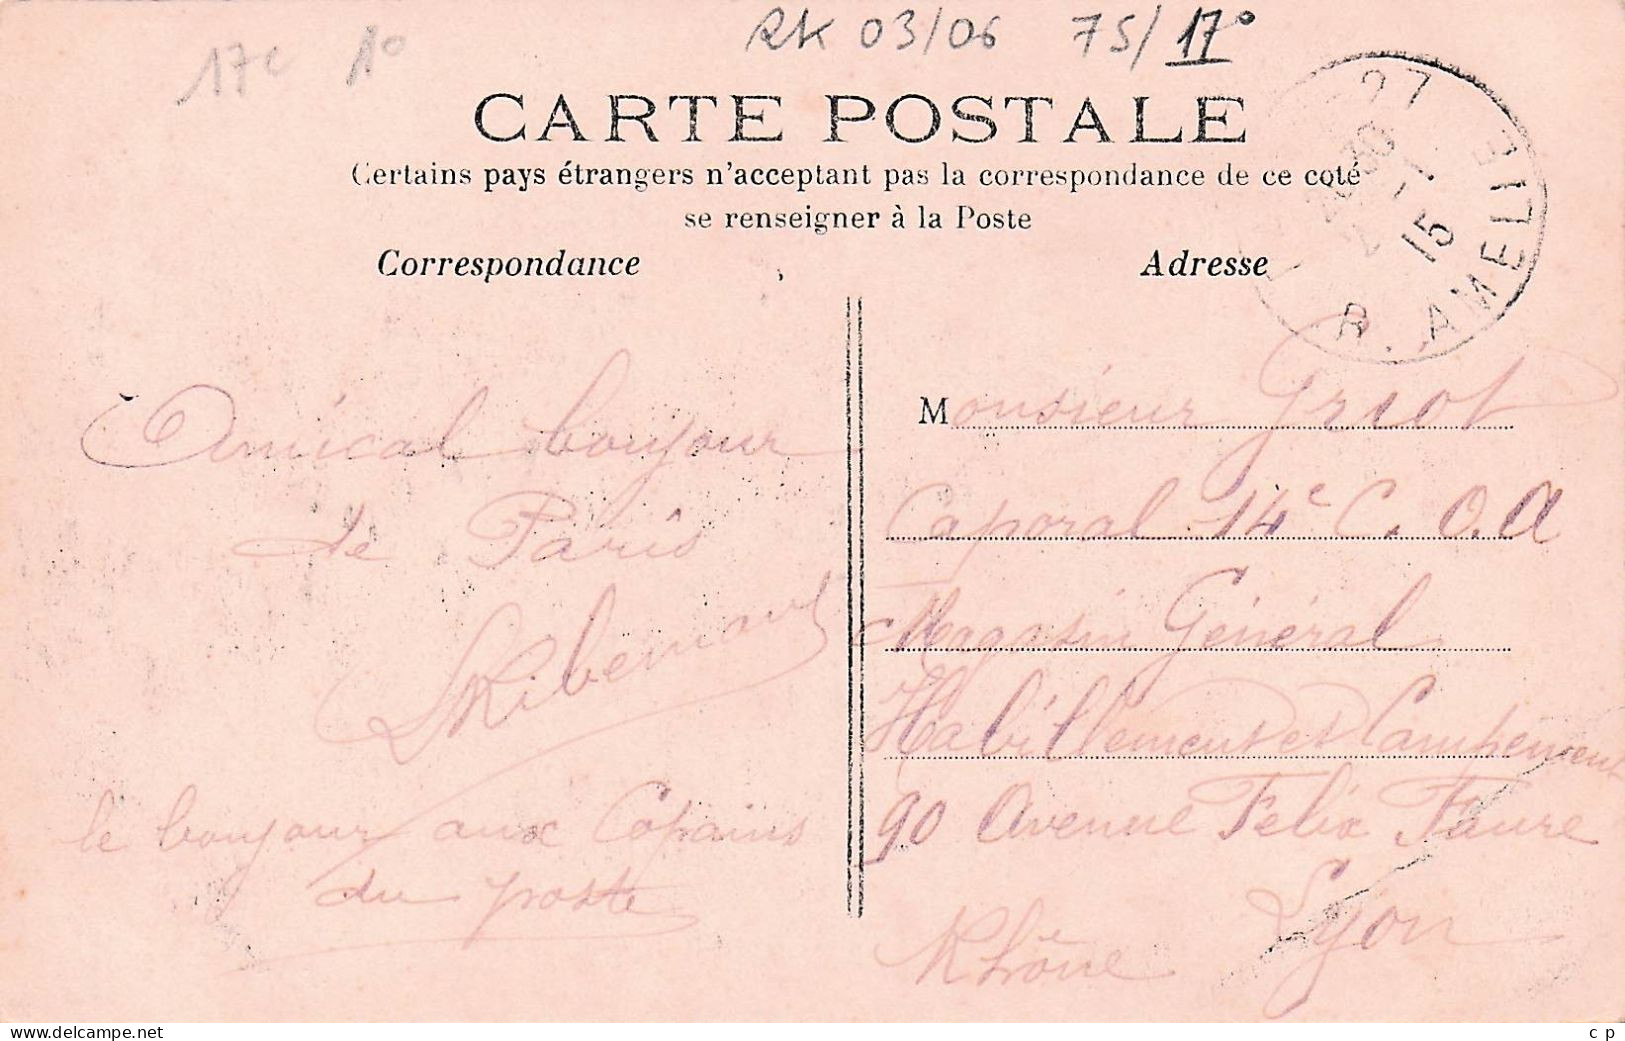 17e 1°
RK 03/06 75/17°
CARTE POSTALE
Certains pays étrangers n'acceptent pas la correspondance de ce coté
se renseigner à la Poste
Correspondance
Adresse
R. AMELIE
-1
15
Amical boujour
de Paris
le boujour aux Copains
du poste
Monsieur Griot
Caporal 14e C. O. A
Magasin Général
Habillement et Campement
90 Avenue Felix Faure
Lyon
Rhône
www.delcampe.net
c p